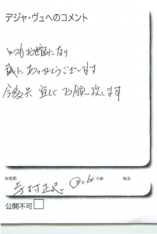 デジャ・ヴュへのコメント
いつもお世話になり
誠にありがとうございます
今後共、宜しくお願い致します
お名前
年齢
公開不可